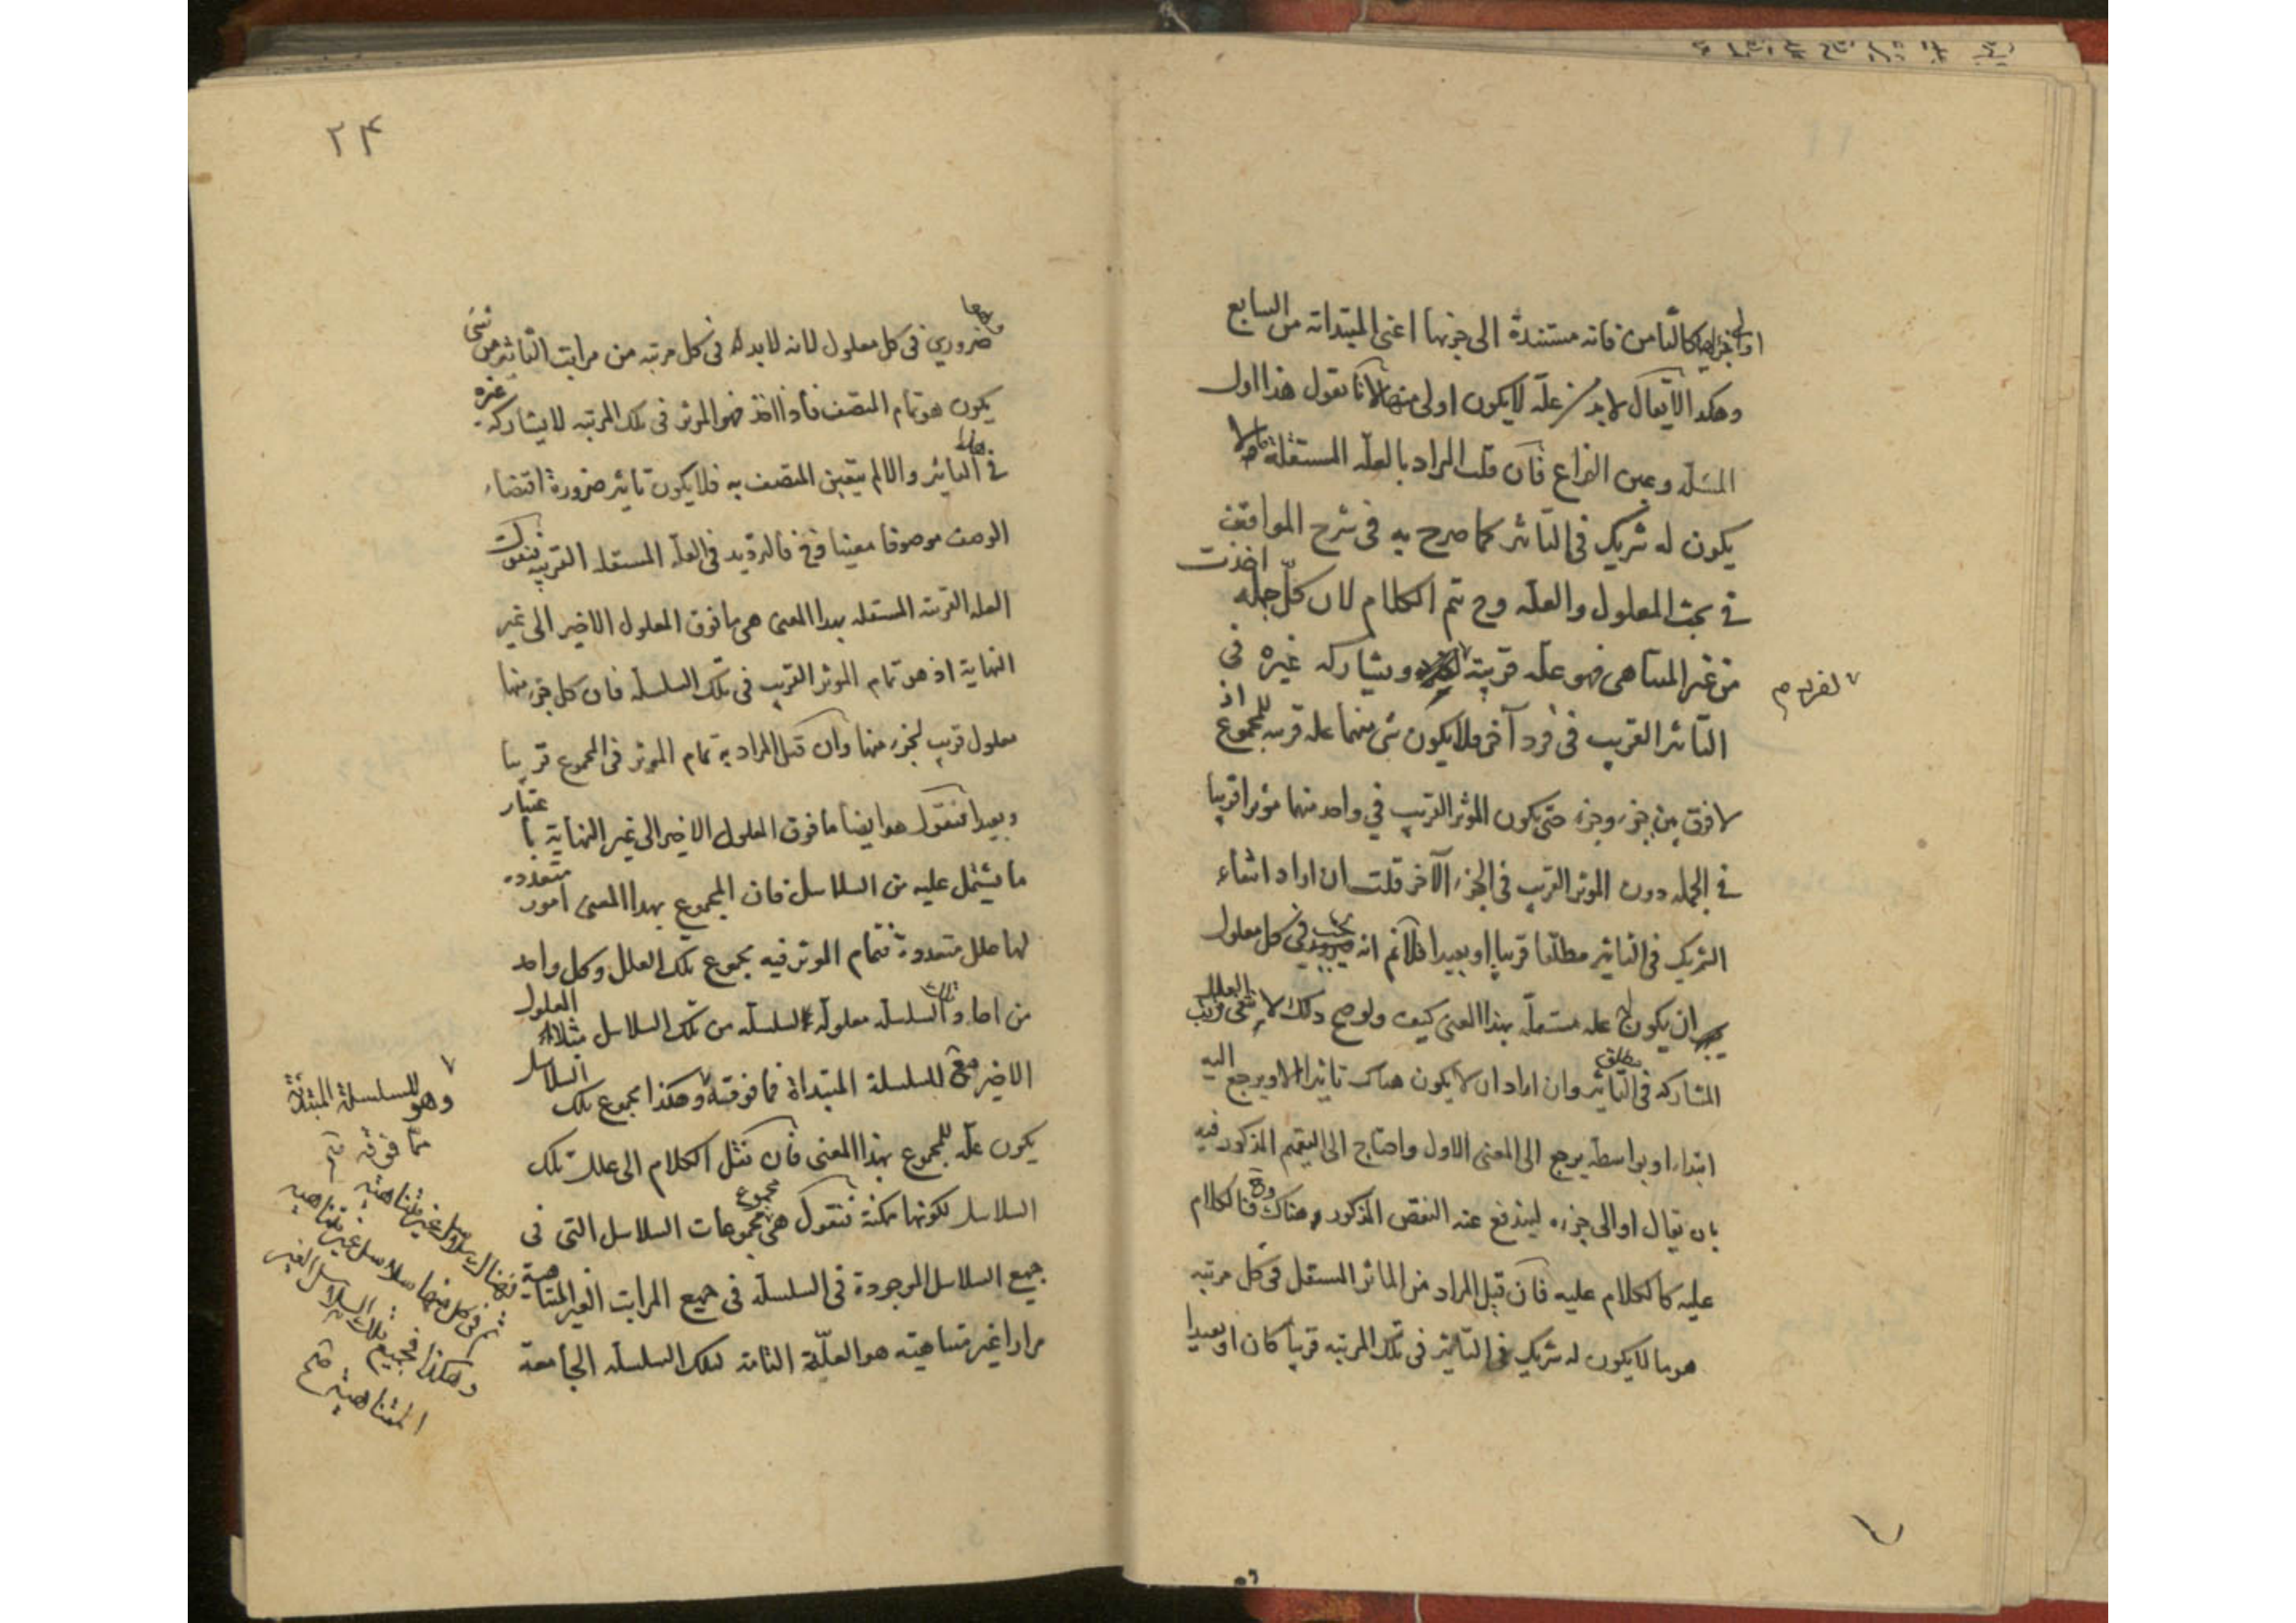 اولى بخلافها كالثامن فانه مستندة الى جزئها اعنى المبتداة من السابع
وهكذا لا يقال لابد من علة لا يكون اولى منها لانا نقول هذا اول
المسئلة وعين النزاع فان قلت المراد بالعلة المستقلة ما لا
يكون له شريك فى التاثير كما صرح به فى شرح المواقف
فى بحث المعلول والعلة وح يتم الكلام لان كل جملة اخذت
من غير المتناهى فهو علة قريبة لفرد ويشاركه غيره فى
التاثير القريب فى فرد آخر فلا يكون شئ منهما علة قريبة للمجموع اذ
لا فرق بين جزء وجزء حتى يكون المؤثر القريب فى واحد منهما مؤثرا قريبا
فى الجملة دون المؤثر القريب فى الجزء الآخر قلت ان اراد انتفاء
الشريك فى التاثير مطلقا قريبا او بعيدا فلا نم انه يجب فى كل معلول
ان يكون له علة مستقلة بهذا المعنى كيف ولو صح ذلك لا
المشاركة فى مطلق التاثير وان اراد ان لا يكون هناك تاثير الا ويرجع اليه
ابتداء او بواسطة يرجع الى المعنى الاول واحتاج الى التعميم المذكور فيه
بان يقال او الى جزءه ليندفع عنه النقض المذكور هناك وح فالكلام
عليه كالكلام عليه فان قيل المراد من المؤثر المستقل فى كل مرتبة
هو ما لا يكون له شريك فى التاثير فى تلك المرتبة قريبا كان او بعيدا
لفرد م
٢۴
ضرورى فى كل معلول لانه لابد له فى كل مرتبة من مراتب التاثير من شئ
يكون هو تمام المتصف فاذا اخذ فهو المؤثر فى تلك المرتبة لا يشاركه غيره
فى التاثير والا لم يتعين المتصف به فلا يكون تاثير ضرورة اقتضاء
الوصف موصوفا معينا وح فالترديد فى العلة المستقلة القريبة فنقول
العلة القريبة المستقلة بهذا المعنى هى ما فوق المعلول الاخير الى غير
النهاية اذ هو تمام المؤثر القريب فى تلك السلسلة فان كل جزء منها
معلول قريب لجزء منها وان قيل المراد به تمام المؤثر فى المجموع قريبا
وبعيدا فنقول هو ايضا ما فوق المعلول الاخير الى غير النهاية باعتبار
ما يشتمل عليه من السلاسل فان المجموع بهذا المعنى امور متعددة
لها علل متعددة فتمام المؤثر فيه مجموع تلك العلل وكل واحد
من احاد تلك السلسلة معلولة لسلسلة من تلك السلاسل مثلا المعلول
الاخير مع للسلسلة المبتداة مما فوقه وهكذا مجموع تلك السلاسل
يكون علة للمجموع بهذا المعنى فان نقل الكلام الى علة تلك
السلاسل لكونها ممكنة فنقول هى مجموع مجموعات السلاسل التى فى
جميع السلاسل الموجودة فى السلسلة فى جميع المراتب الغير المتناهية
مرارا غير متناهية هو العلة التامة لتلك السلسلة الجامعة
وهو للسلسلة المبتداة
مما فوقه
فهناك سلاسل غير متناهية
ثم فى كل منها سلاسل غير متناهية
وهكذا فجميع تلك السلاسل الغير
المتناهية